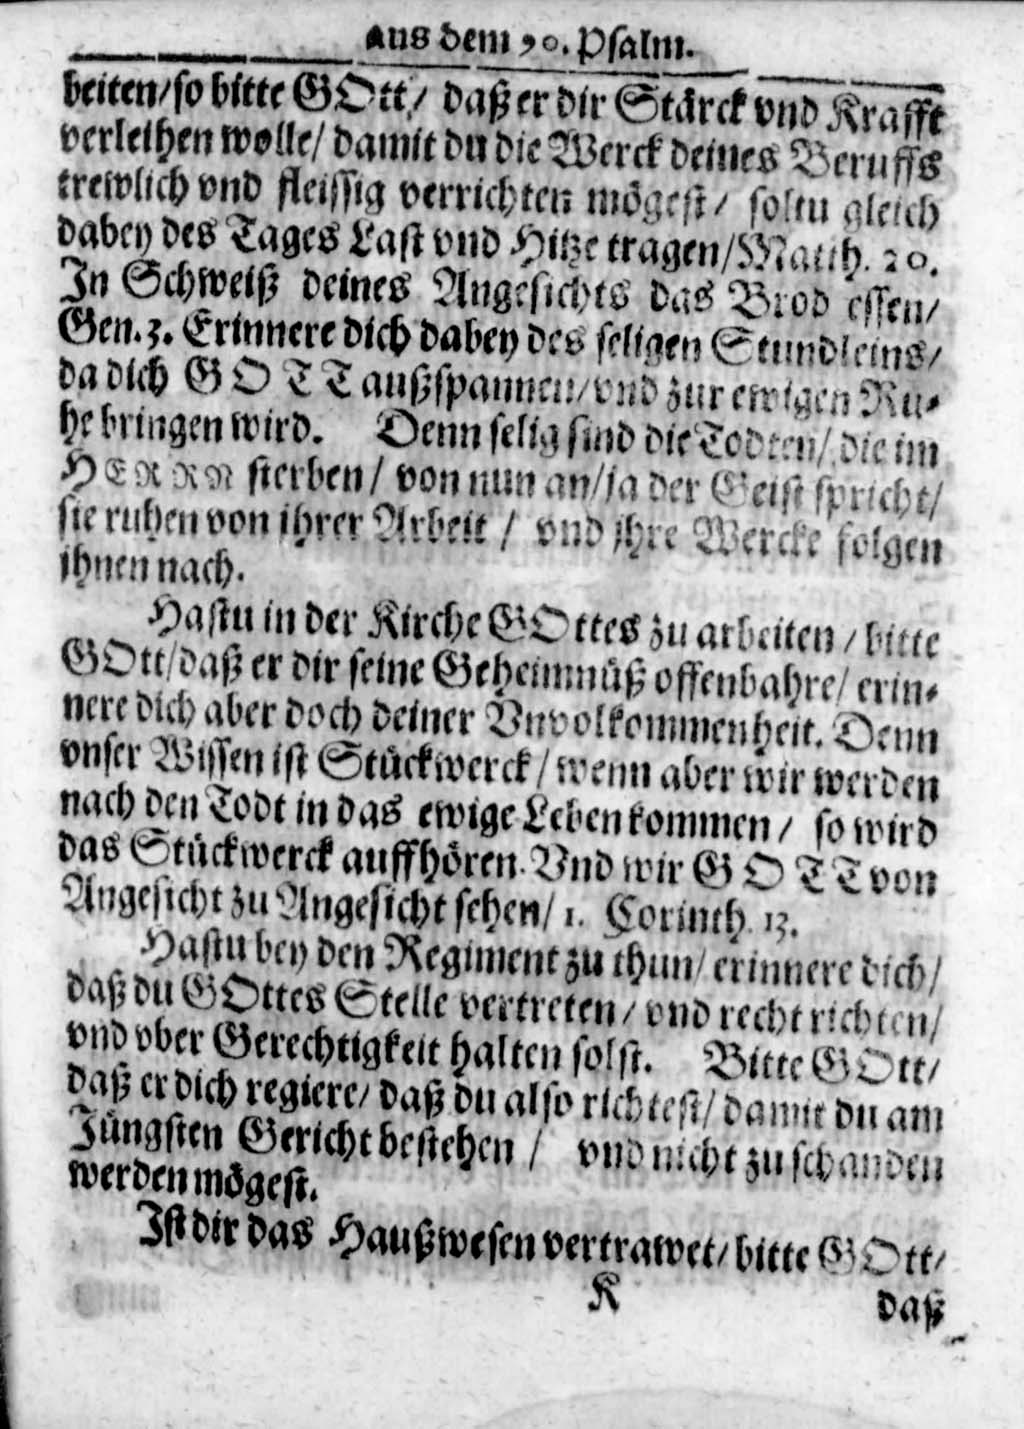 aus dem 90. Psalm.
beiten/so bitte GOtt/ daß er dir Stärck vnd Krafft
verleihen wolle/ damit du die Werck deines Beruffs
trewlich vnd fleissig verrichten mögest/ soltu gleich
dabey des Tages Last vnd Hitze tragen/Matth. 20.
In Schweiß deines Angesichts das Brod essen/
Gen. 3. Erinnere dich dabey des seligen Stundleins/
da dich GOTT außspannen/vnd zur ewigen Ru-
he bringen wird. Denn selig sind die Todten/ die im
HERRN sterben/ von nun an/ja der Geist spricht/
sie ruhen von ihrer Arbeit/ vnd ihre Wercke folgen
ihnen nach.
Hastu in der Kirche GOttes zu arbeiten/ bitte
GOtt/daß er dir seine Geheimnüß offenbahre/ erin-
nere dich aber doch deiner Vnvolkommenheit. Denn
vnser Wissen ist Stückwerck/ wenn aber wir werden
nach den Todt in das ewige Leben kommen/ so wird
das Stückwerck auffhören. Vnd wir GOTT von
Angesicht zu Angesicht sehen/ 1. Corinth. 13.
Hastu bey den Regiment zu thun/ erinnere dich/
daß du GOttes Stelle vertreten/ vnd recht richten/
vnd vber Gerechtigkeit halten solst. Bitte GOtt/
daß er dich regiere/ daß du also richtest/ damit du am
Jüngsten Gericht bestehen/ vnd nicht zu schanden
werden mögest.
Ist dir das Haußwesen vertrawet/ bitte GOtt/
K daß